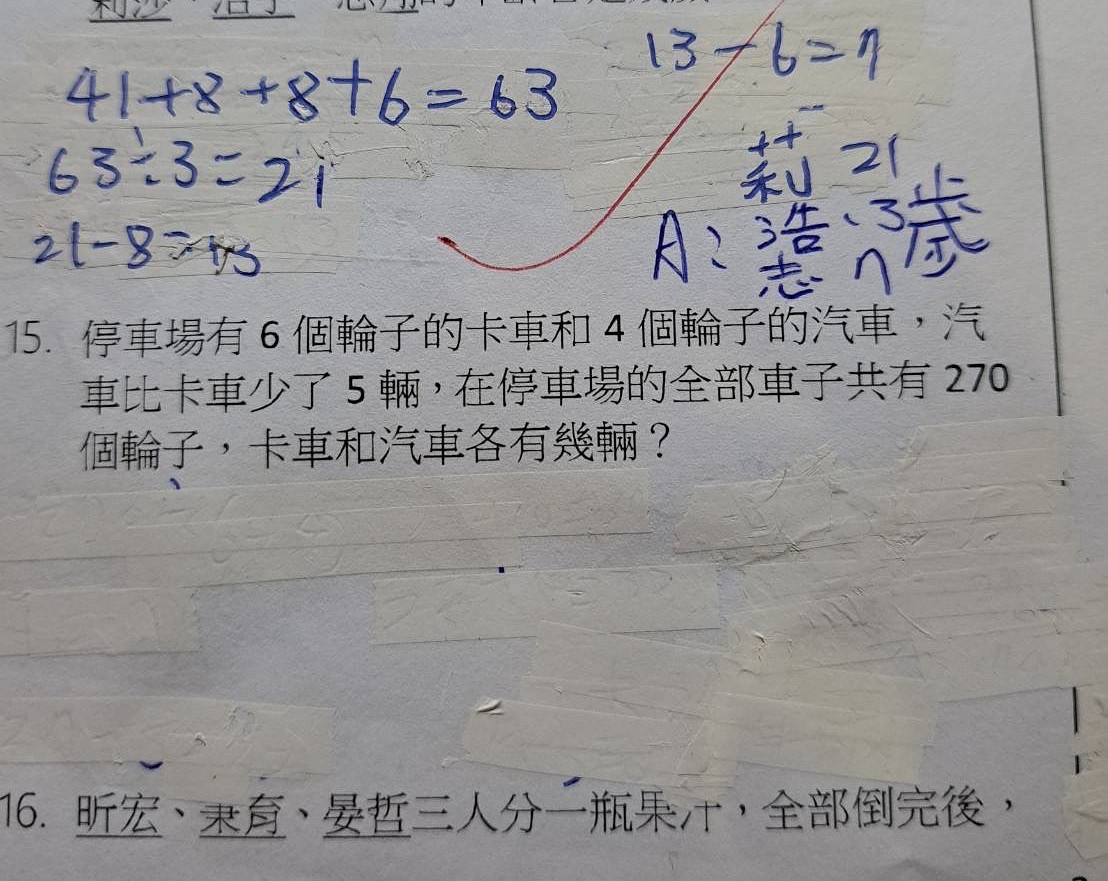 41+8+8+6=63
13-6=7
63÷3=21
莉 21
21-8=13
A: 浩 13 歲
志 7
15. 停車場有 6 個輪子的卡車和 4 個輪子的汽車，汽
車比卡車少了 5 輛，在停車場的全部車子共有 270
個輪子，卡車和汽車各有幾輛？
16. 昕宏、秉育、晏哲三人分一瓶果汁，全部倒完後，